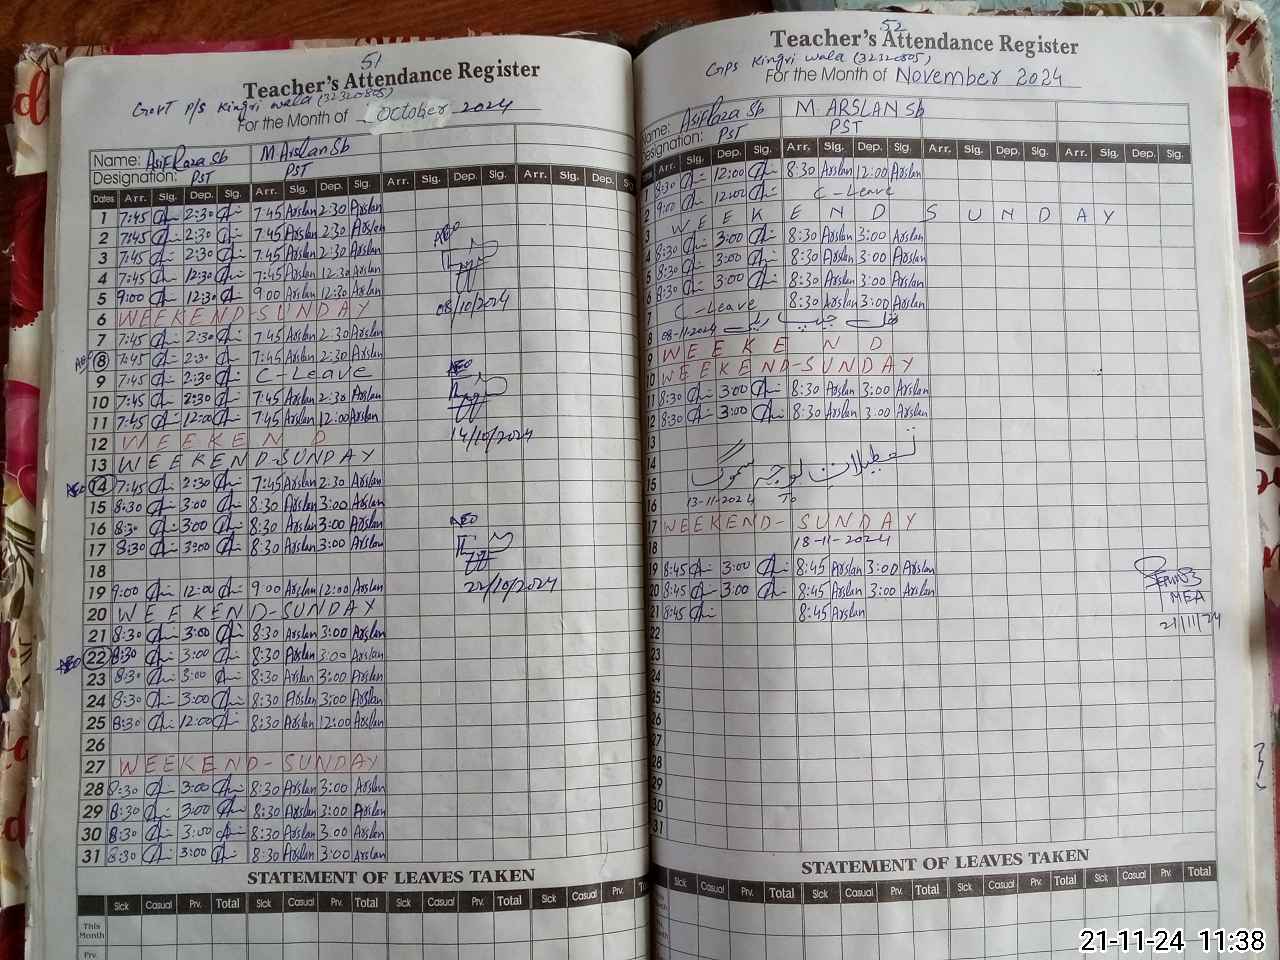 51
Teacher's Attendance Register
Govt P/S Kingri wala (32320805)
For the Month of October 2024
Name: Asif Raza Sb M Arslan Sb
Designation: PST PST
Dates Arr. Sig. Dep. Sig. Arr. Sig. Dep. Sig. Arr. Sig. Dep. Sig. Arr. Sig. Dep.
1 7:45 2:30 7:45 Arslan 2:30 Arslan
2 7:45 2:30 7:45 Arslan 2:30 Arslan
3 7:45 2:30 7:45 Arslan 2:30 Arslan
AEO
4 7:45 12:30 7:45 Arslan 12:30 Arslan
5 9:00 12:30 9:00 Arslan 12:30 Arslan
08/10/2024
6 WEEKEND-SUNDAY
7 7:45 2:30 7:45 Arslan 2:30 Arslan
AEO 8 7:45 2:30 7:45 Arslan 2:30 Arslan
9 7:45 2:30 C-Leave
AEO
10 7:45 2:30 7:45 Arslan 2:30 Arslan
11 7:45 12:00 7:45 Arslan 12:00 Arslan
14/10/2024
12 WEEKEND
13 WEEKEND-SUNDAY
AEO 14 7:45 2:30 7:45 Arslan 2:30 Arslan
15 8:30 3:00 8:30 Arslan 3:00 Arslan
16 8:30 3:00 8:30 Arslan 3:00 Arslan
AEO
17 8:30 3:00 8:30 Arslan 3:00 Arslan
18
19 9:00 12:00 9:00 Arslan 12:00 Arslan
22/10/2024
20 WEEKEND-SUNDAY
21 8:30 3:00 8:30 Arslan 3:00 Arslan
AEO 22 8:30 3:00 8:30 Arslan 3:00 Arslan
23 8:30 3:00 8:30 Arslan 3:00 Arslan
24 8:30 3:00 8:30 Arslan 3:00 Arslan
25 8:30 12:00 8:30 Arslan 12:00 Arslan
26
27 WEEKEND-SUNDAY
28 8:30 3:00 8:30 Arslan 3:00 Arslan
29 8:30 3:00 8:30 Arslan 3:00 Arslan
30 8:30 3:00 8:30 Arslan 3:00 Arslan
31 8:30 3:00 8:30 Arslan 3:00 Arslan
STATEMENT OF LEAVES TAKEN
Sick Casual Prv. Total Sick Casual Prv. Total Sick Casual Prv. Total Sick Casual Prv.
This Month
Prv.
52
Teacher's Attendance Register
GPS Kingri wala (32320805)
For the Month of November 2024
Name: Asif Raza Sb M. ARSLAN Sb
Designation: PST PST
Arr. Sig. Dep. Sig. Arr. Sig. Dep. Sig. Arr. Sig. Dep. Sig. Arr. Sig. Dep. Sig.
8:30 12:00 8:30 Arslan 12:00 Arslan
2 9:00 12:02 C-Leave
3 WEEKEND SUNDAY
4 8:30 3:00 8:30 Arslan 3:00 Arslan
5 8:30 3:00 8:30 Arslan 3:00 Arslan
6 8:30 3:00 8:30 Arslan 3:00 Arslan
7 C-Leave 8:30 Arslan 3:00 Arslan
8 08-11-2024
9 WEEKEND
10 WEEKEND-SUNDAY
11 8:30 3:00 8:30 Arslan 3:00 Arslan
12 8:30 3:00 8:30 Arslan 3:00 Arslan
13
14
15 تعطیلات بوجہ سموگ
16 13-11-2024 To
17 WEEKEND-SUNDAY
18 18-11-2024
19 8:45 3:00 8:45 Arslan 3:00 Arslan
20 8:45 3:00 8:45 Arslan 3:00 Arslan
21 8:45 8:45 Arslan
MEA
21/11/24
22
23
24
25
26
27
28
29
30
31
STATEMENT OF LEAVES TAKEN
Sick Casual Prv. Total Sick Casual Prv. Total Sick Casual Prv. Total Sick Casual Prv. Total
21-11-24 11:38